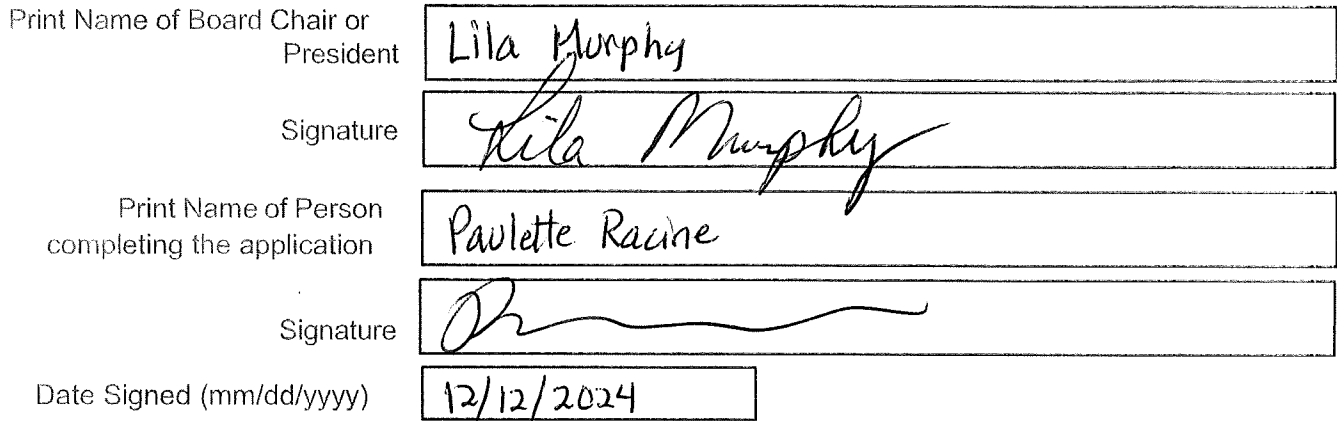 Print Name of Board Chair or
President
Lila Murphy
Signature
Lila Murphy
Print Name of Person
completing the application
Paulette Racine
Signature
Date Signed (mm/dd/yyyy)
12/12/2024